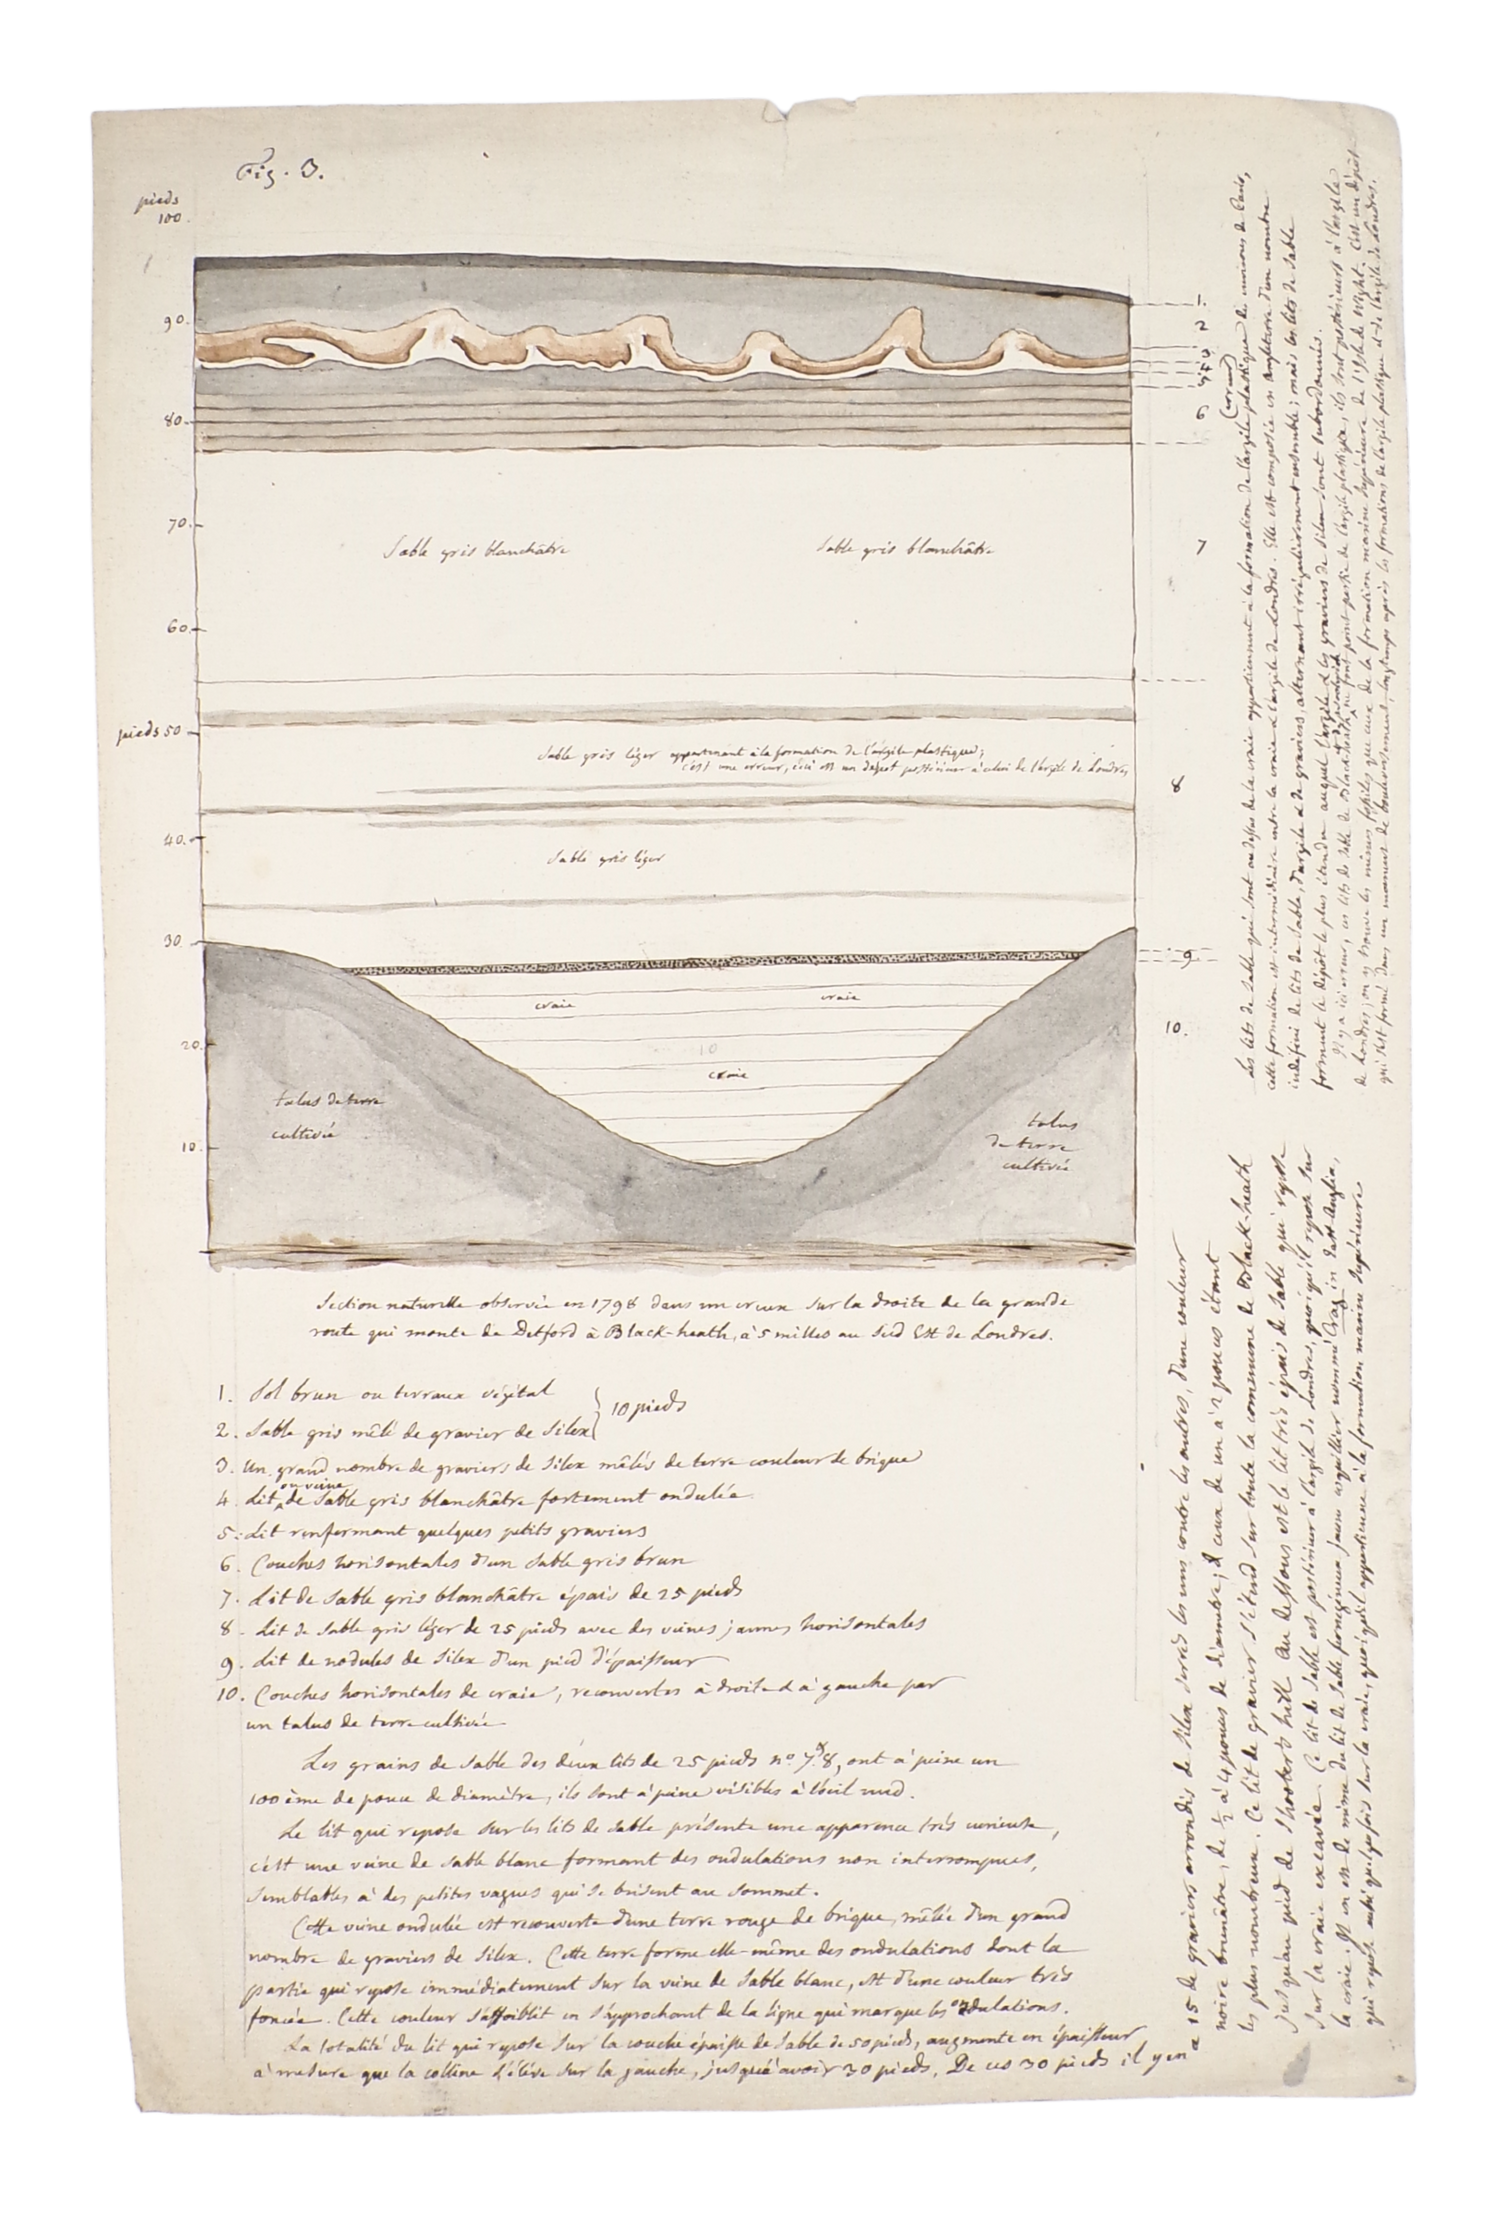 Fig. 3.
pieds
100.
90.
80.
70.
60.
pieds 50
40.
30.
20.
10.
1
2
3
4
5
6
7
8
9
10.
Sable gris blanchâtre
Sable gris blanchâtre
Sable gris léger appartenant à la formation de l'argile plastique;
c'est une erreur, c'est un dépot postérieur à celui de l'argile de Londres
Sable gris léger
craie
craie
10
craie
talus de terre
cultivée
talus
de terre
cultivée
Section naturelle observée en 1798 dans un creux sur la droite de la grande
route qui monte de Detford à Black-heath, à 5 milles au Sud Est de Londres.
1. Sol brun ou terreau végétal
2. Sable gris mêlé de gravier de Silex
10 pieds
3. Un grand nombre de graviers de Silex mêlés de terre couleur de brique
4. Lit ou veine de Sable gris blanchâtre fortement ondulée
5. Lit renfermant quelques petits graviers
6. Couches horisontales d'un Sable gris brun
7. Lit de Sable gris blanchâtre épais de 25 pieds
8. Lit de Sable gris léger de 25 pieds avec des veines jaunes horisontales
9. Lit de nodules de Silex d'un pied d'épaisseur
10. Couches horisontales de craie, recouvertes à droite et à gauche par
un talus de terre cultivée
Les grains de Sable des deux lits de 25 pieds no. 7 & 8, ont à peine un
100ème de pouce de diamètre, ils sont à peine visibles à l'oeil nud.
Le lit qui repose sur les lits de Sable présente une apparence très curieuse,
c'est une veine de sable blanc formant des ondulations non interrompues,
semblables à des petites vagues qui se brisent au sommet.
Cette veine ondulée est recouverte d'une terre rouge de brique, mêlée d'un grand
nombre de graviers de Silex. Cette terre forme elle-même des ondulations dont la
partie qui repose immédiatement sur la veine de Sable blanc, est d'une couleur très
foncée. Cette couleur s'affoiblit en s'approchant de la ligne qui marque les ondulations.
La totalité du lit qui repose sur la couche épaisse de Sable de 50 pieds, augmente en épaisseur
à mesure que la colline s'élève sur la gauche, jusqu'à avoir 30 pieds. De ces 30 pieds il y en a
15 de graviers arrondis de Silex serrés les uns contre les autres, d'une couleur
noire brunâtre, de ½ à 4 pouces de diamètre; et ceux de un à 2 pouces étant
les plus nombreux. Ce lit de gravier s'étend sur toute la commune de Black-heath
jusqu'au pied de Shooters hill. Au dessous est le lit très épais de Sable qui repose
sur la craie excavée. Ce lit de Sable est postérieur à l'argile de Londres, quoiqu'il repose sur
la craie. Il en est de même du lit de Sable ferrugineux jaune appellé nommé Crag in East Anglia,
qui repose aussi quelquefois sur la craie, quoiqu'il appartienne à la formation marine supérieure
Les lits de Sable qui sont au dessus de la craie appartiennent à la formation de l'argile plastique (erreur) des environs de Paris,
cette formation est intermédiaire entre la craie et l'argile de Londres. Elle est composée en Angleterre d'un nombre
indéfini de lits de Sable, d'argile et de graviers, alternant irrégulièrement ensemble; mais les lits de Sable
forment le dépôt le plus étendu auquel l'argile et les graviers de Silex sont subordonnés.
Il y a ici erreur, ces lits de Sable de Black-heath et de Woolwich ne font point partie de l'argile plastique, ils sont postérieurs à l'argile
de Londres; on y trouve les mêmes fossiles que ceux de la formation marine supérieure de l'isle de Wight. C'est un dépôt
qui s'est formé dans un moment de bouleversement, longtemps après les formations de l'argile plastique et de l'argile de Londres.